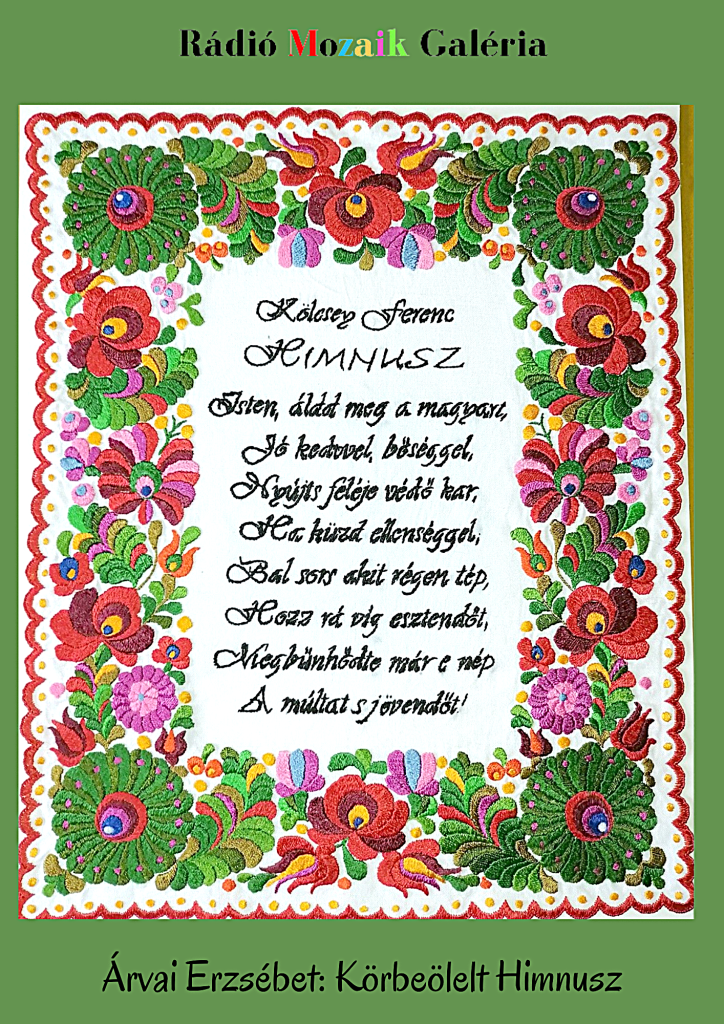 Rádió Mozaik Galéria
Kölcsey Ferenc
HIMNUSZ
Isten, áldd meg a magyart,
Jó kedvvel, bőséggel,
Nyújts feléje védő kar,
Ha küzd ellenséggel,
Bal sors akit régen tép,
Hozz rá víg esztendőt,
Megbűnhődte már e nép
A múltat s jövendőt!
Árvai Erzsébet: Körbeölelt Himnusz